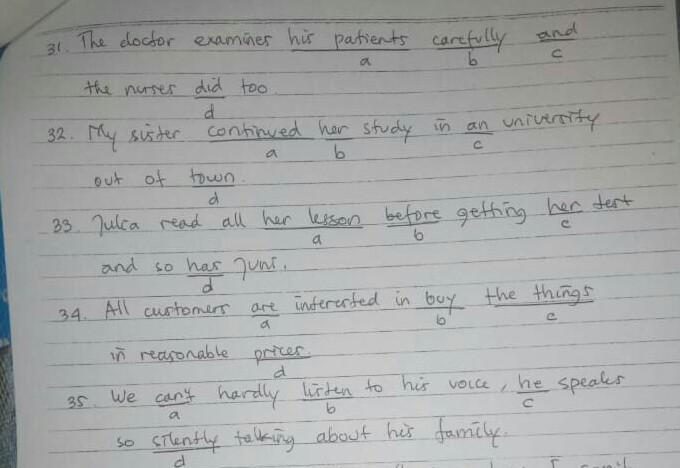 31. The doctor examines his patients carefully and
a b c
the nurses did too.
d
32. My sister continued her study in an university
a b c
out of town.
d
33. Julca read all her lesson before getting her test
a b c
and so has Juni.
d
34. All customers are interested in buy the things
a b c
in reasonable prices.
d
35. We can't hardly listen to his voice, he speaks
a b c
so silently talking about his family.
d